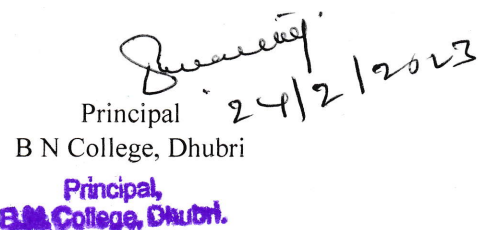 24/2/2023
Principal
B N College, Dhubri
Principal,
B.N. College, Dhubri.